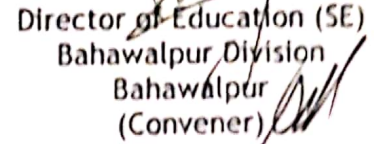 Director of Education (SE)
Bahawalpur Division
Bahawalpur
(Convener)